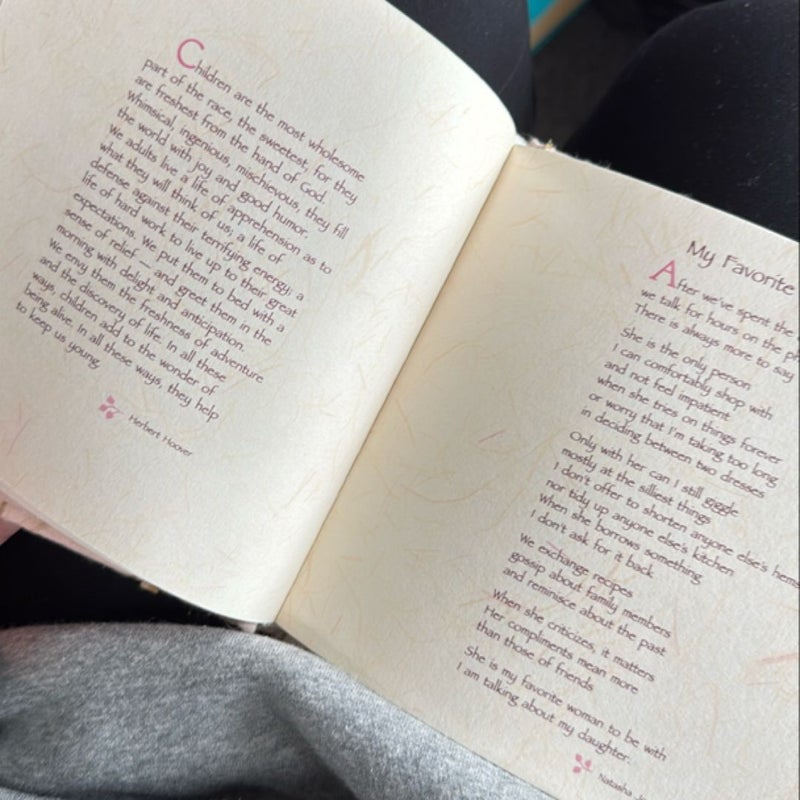 Children are the most wholesome
part of the race, the sweetest, for they
are freshest from the hand of God.
Whimsical, ingenious, mischievous, they fill
the world with joy and good humor.
We adults live a life of apprehension as to
what they will think of us; a life of
defense against their terrifying energy; a
life of hard work to live up to their great
expectations. We put them to bed with a
sense of relief — and greet them in the
morning with delight and anticipation.
We envy them the freshness of adventure
and the discovery of life. In all these
ways, children add to the wonder of
being alive. In all these ways, they help
to keep us young.
Herbert Hoover
My Favorite
After we've spent the
we talk for hours on the
There is always more to say
She is the only person
I can comfortably shop with
and not feel impatient
when she tries on things forever
or worry that I'm taking too long
in deciding between two dresses
Only with her can I still giggle
mostly at the silliest things
I don't offer to shorten anyone else's hems
nor tidy up anyone else's kitchen
When she borrows something
I don't ask for it back
We exchange recipes
gossip about family members
and reminisce about the past
When she criticizes, it matters
Her compliments mean more
than those of friends
She is my favorite woman to be with
I am talking about my daughter.
Natasha